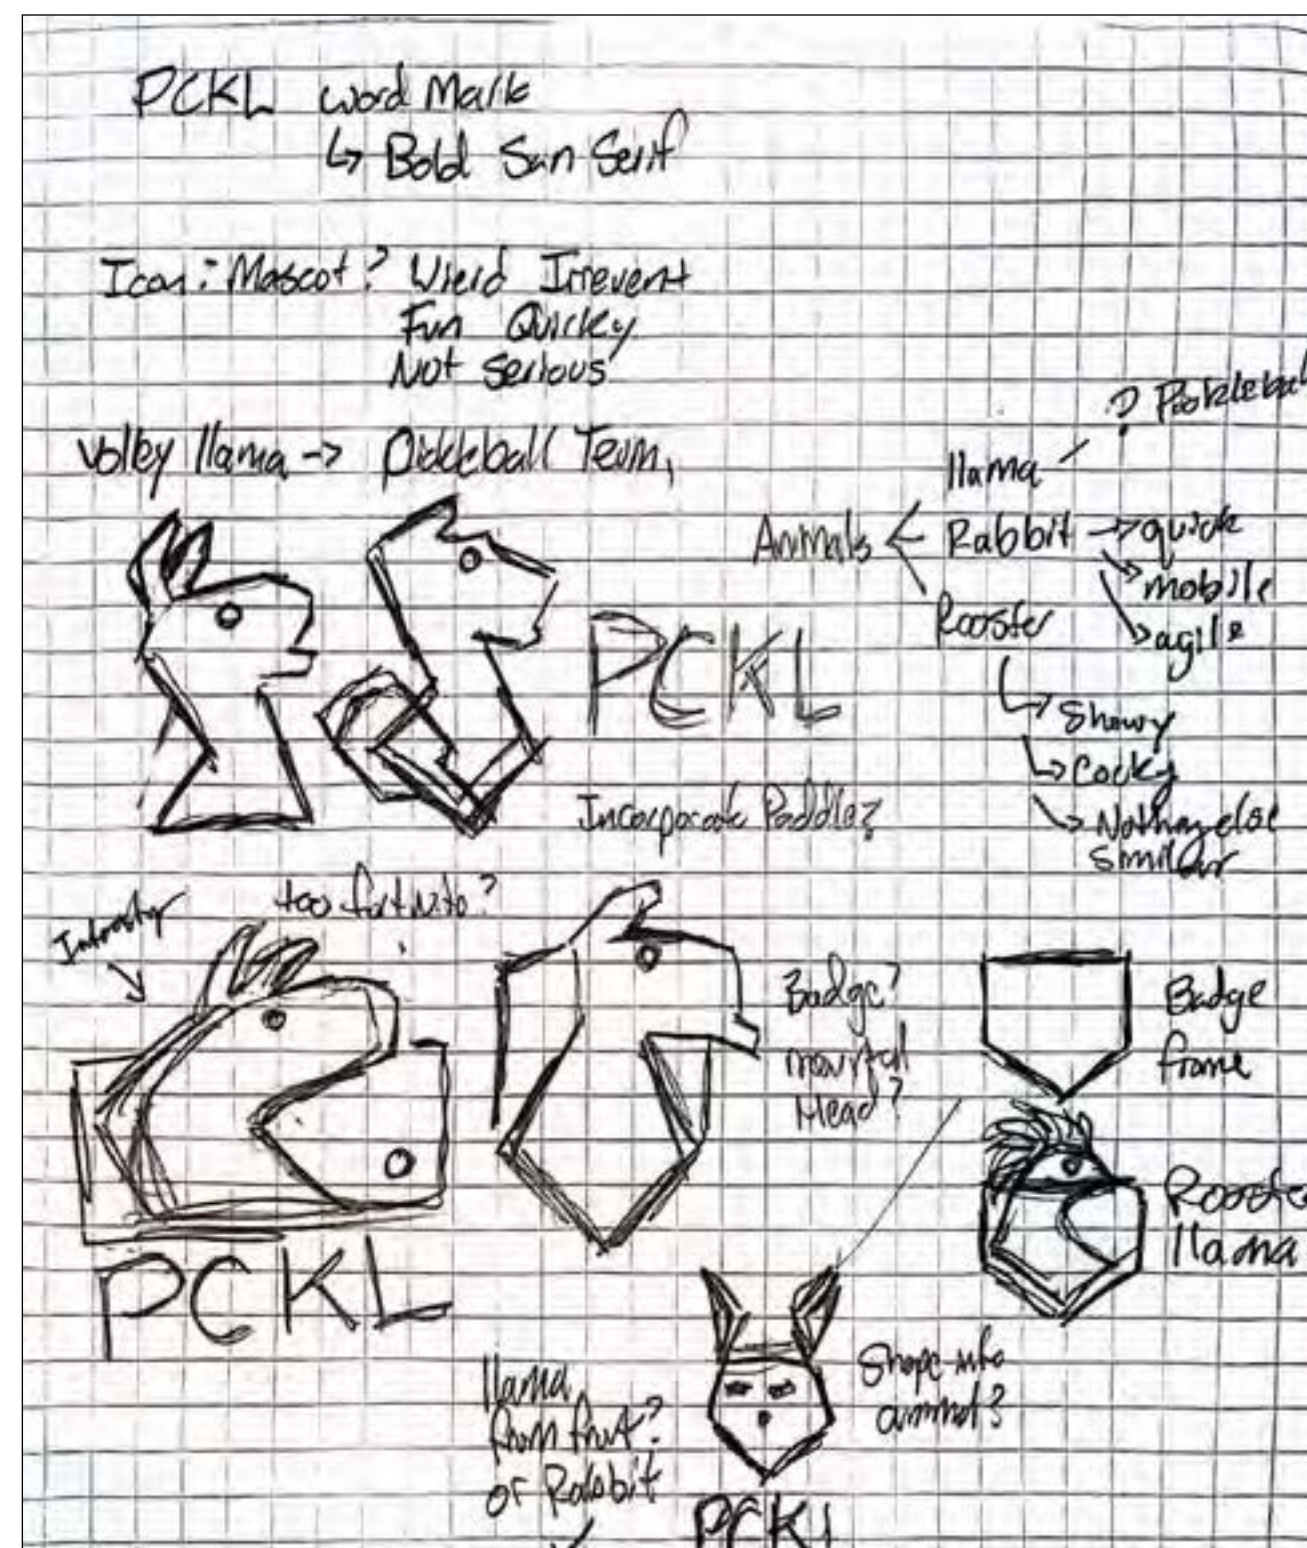 PCKL word Mark
↳ Bold San Serif
Icon: Mascot? Wierd Irrevent
Fun Quirky
Not serious
Volley llama -> Pickleball Term,
? Pickleball
llama
Animals < Rabbit -> quick
-> mobile
-> agile
Rooster
↳ Showy
↳ Cocky
-> Nothing else
similar
PCKL
Incorporate Paddle?
too fortnite?
Badge?
Head?
Badge
frame
Rooster
llama
PCKL
llama
from front?
or Rabbit
Shape into
animal?
PCKL